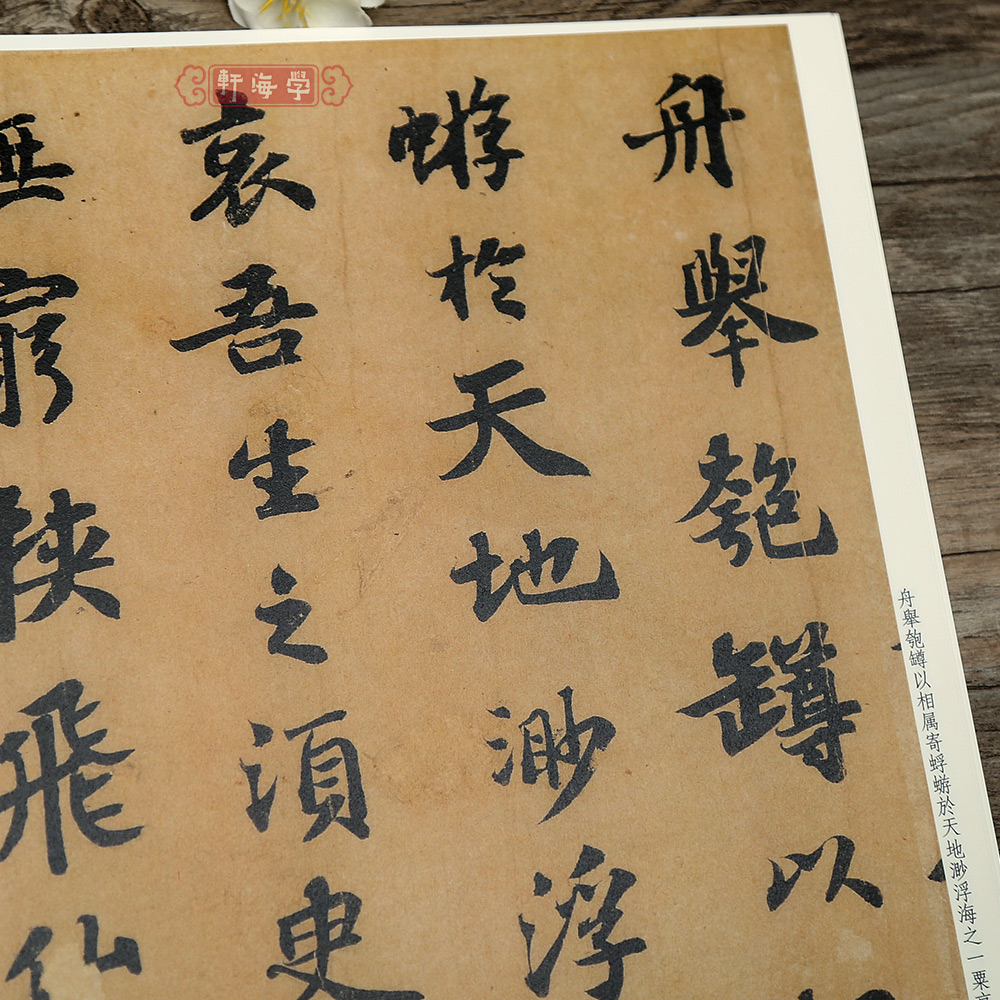 學海軒
舟舉匏罇以
蝣於天地渺浮
哀吾生之須臾
無窮挾飛仙
舟舉匏罇以相属寄蜉蝣於天地渺浮海之一粟